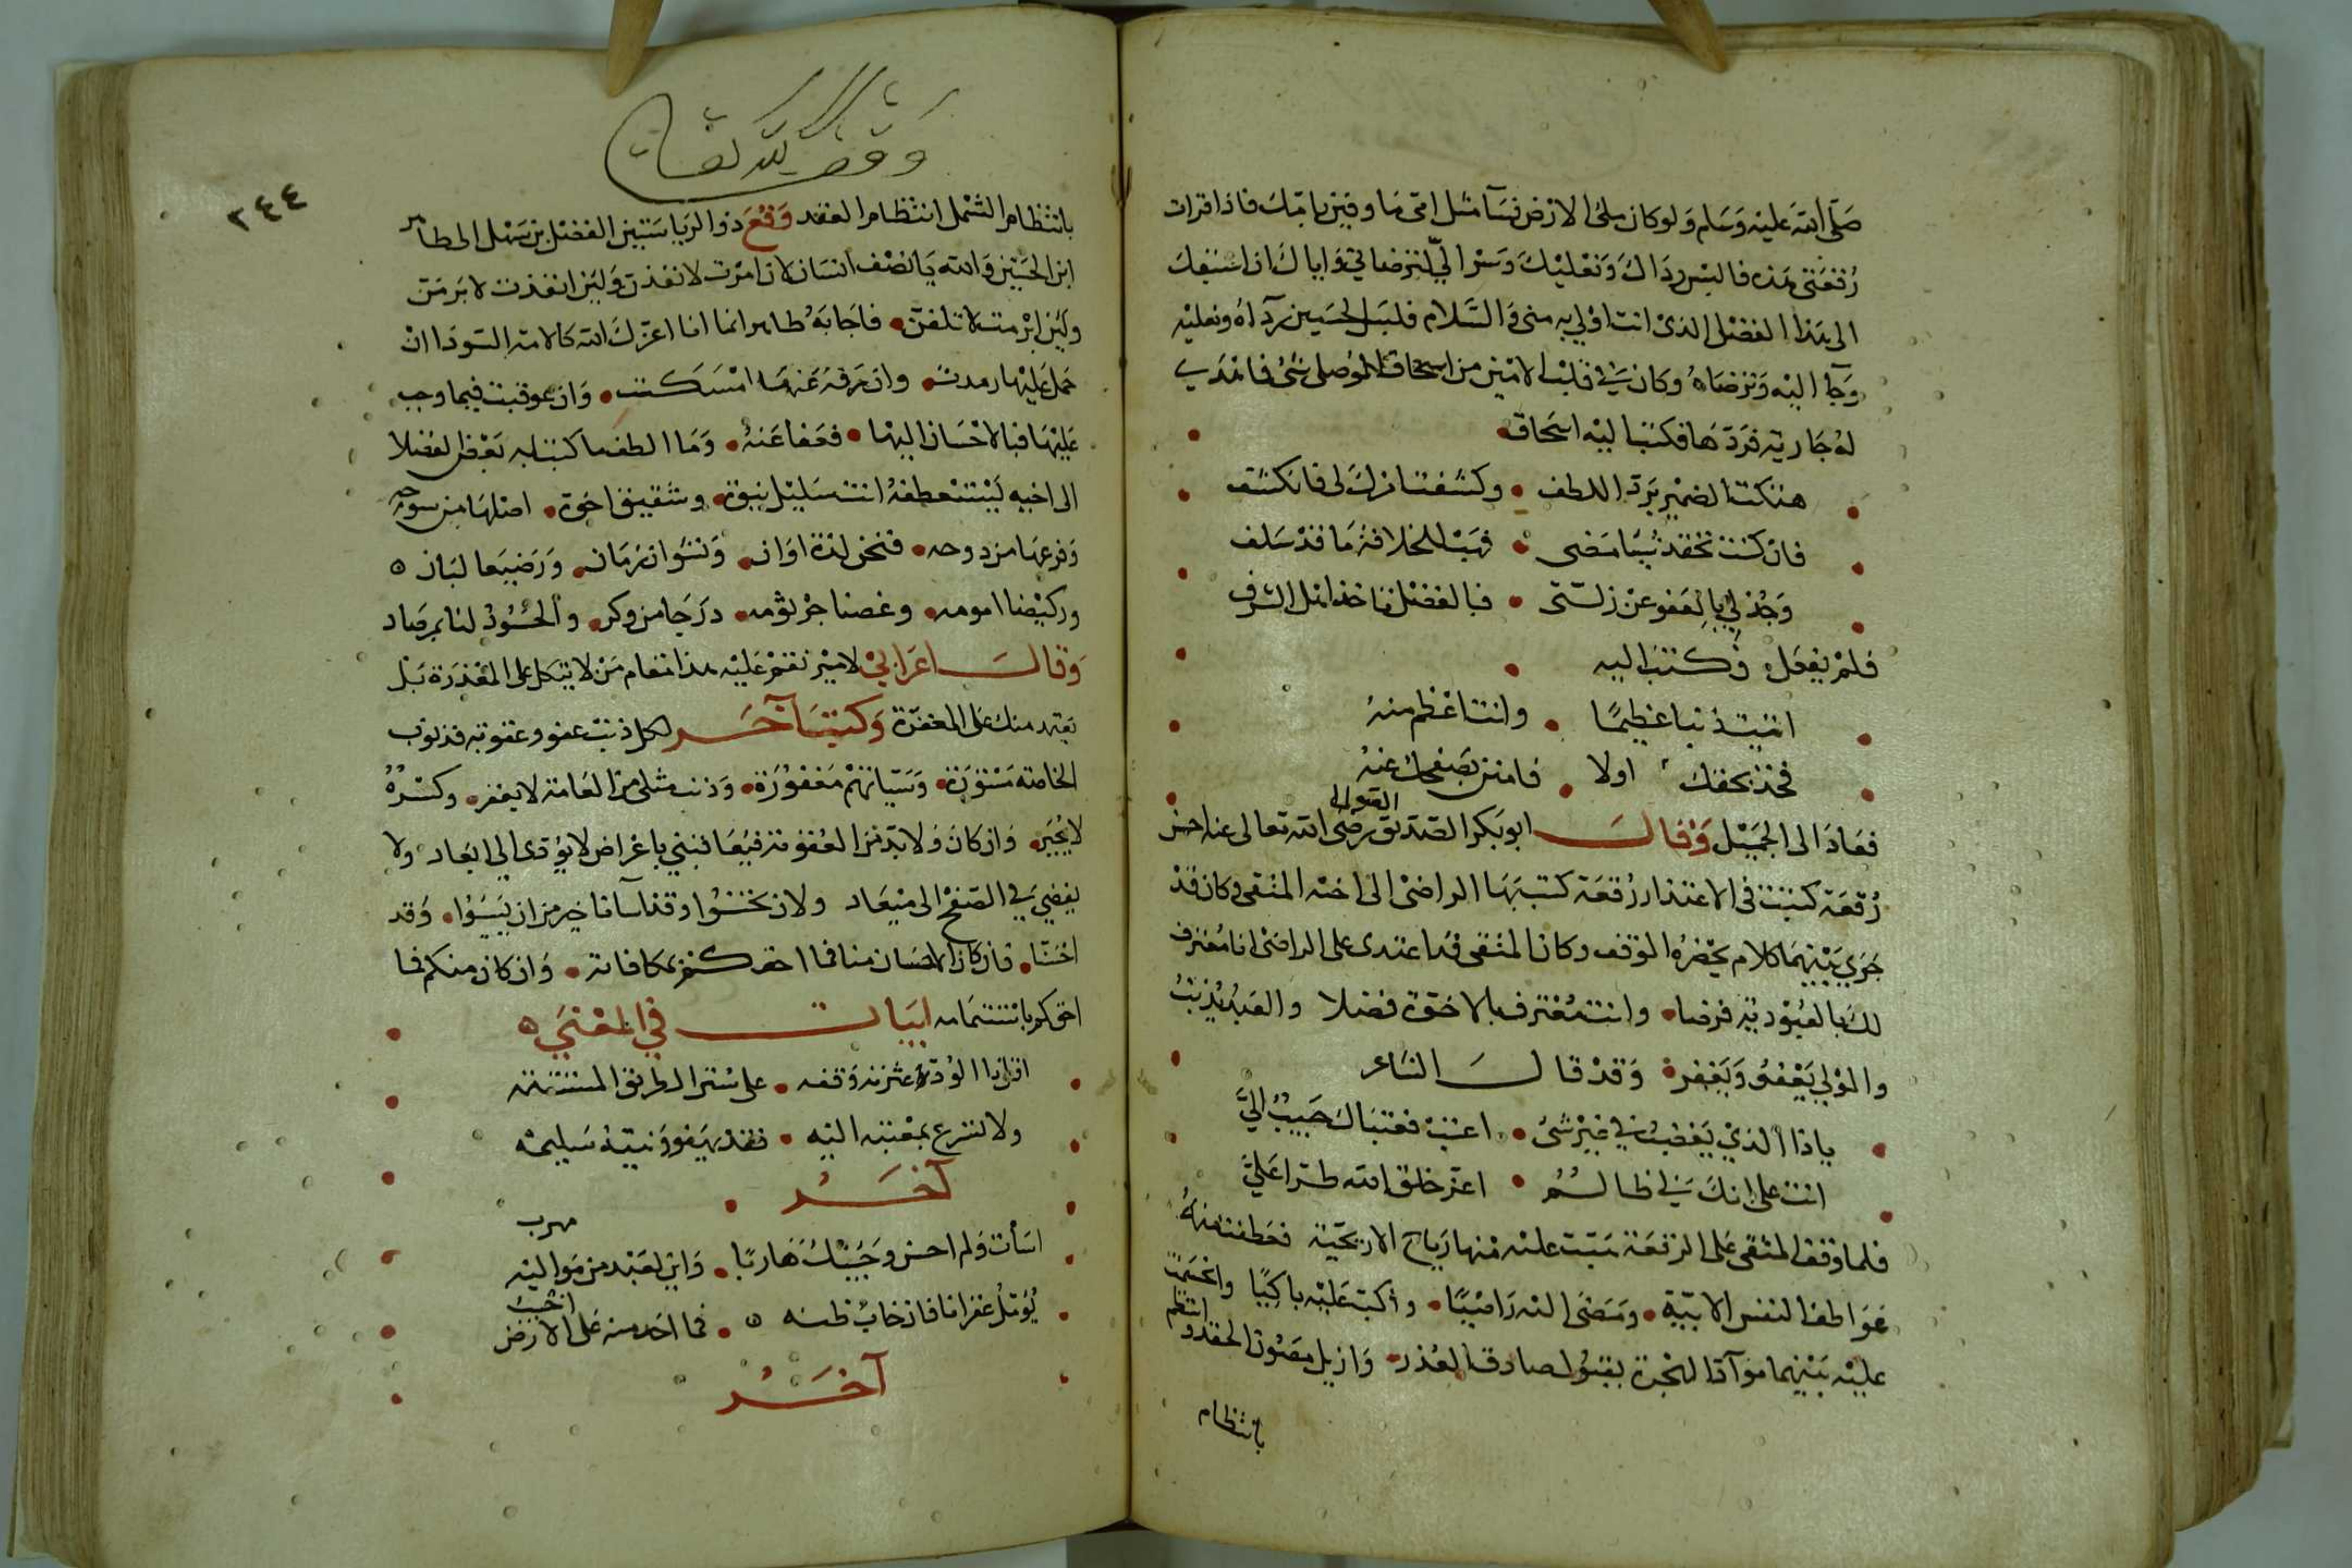 صلى الله عليه وسلم ولو كان ملئ الارض نسآ مثل امى ما وفين بامك فاذا قرات
رقعتى هذه فالبس رداك ونعليك وسر الي لترضاني واياك ان اسبقك
الى هذا الفضل الذى انت اولى به منى والسلام فلبس الحسين ردآه ونعليه
وجآ اليه وترضاه وكان في قلب الامين من اسحاق الموصلى شئ فاهدي
له جارية فردها فكتب اليه اسحاق
هتكت الضمير برد اللطف • وكشفت امرك لى فانكشف
فان كنت تحقد شيا مضى • فهب للخلافة ما قد سلف
وجد لي بالعفو عن زلتى • فبالفضل تاخذ اهل الشرف
فلم يفعل فكتب اليه
اتيت ذنبا عظيما • وانت اعظم منه
فخذ بحقك اولا • فامنن بصفحك عنه
فعاد الى الجميل وقال ابو بكر الصولى رضى الله تعالى عنه احسن
رقعة كتبت فى الاعتذار رقعة كتب بها الراضى الى اخيه المتقى وكان قد
جري بينهما كلام بحضره المؤدب وكان المتقى قد اعتدى على الراضى انا معترف
لك بالعبودية فرضا • وانت معترف بالاخوة فضلا والعبد يذنب
والمولى يعفو ويغفر • وقد قال الشاعر
ياذا الذي يغضب في غير شئ • اعتب فعتباك حبيب الي
انت على انك لي ظالم • اعز خلق الله طرا علي
فلما وقف المتقى على الرقعة هبت عليه منها رياح الاريحية فعطفت منه
عواطف النفس الابية • ومضى اليه راضيا • واكب عليه باكيا وانحسمت
عليه بينهما موآد الهجرة بقبول صادق العذر • وازيل مصون الحقد وانتظم
بانتظام
وقف لله تعالى
٢٤٤
بانتظام الشمل انتظام العقد وقع ذوالرياستين الفضل بن سهل الى طاهر
ابن الحسين والله يا نصف انسان لان امرت لانفذن ولئن انفذت لابرمن
ولئن ابرمت لاتلفن • فاجابه طاهر انما انا اعزك الله كالامة السودا ان
حمل عليها رمدت • وان رفه عنها امسكت • وان عوقبت فيما وجب
عليها فبالاحسان اليها • فعفا عنه • وما الطف ما كتب به بعض الفضلا
الى اخيه يستعطفه انت سليل نبوة • وشقيق اخوة • اصلها من سرحه
وفرعها من دوحه • فنحن لدة اوان • ونشوا زمان • ورضيعا لبان
وركيضا امومه • وغصنا جرثومه • درجا من وكر • والحسود لنا بمرصاد
وقال اعرابي لامير نقم عليه هذا مقام من لا يتكل على المعذرة بل
يعتمد منك على المغفرة وكتب آخر لكل ذنب عفو وعقوبة فذنوب
الخاصة مستورة • وسيآتهم مغفورة • وذنب مثلى من العامة لا يغفر • وكسره
لا يجبر • وان كان ولا بد من العقوبة فيعاقبني باعراض لا يؤدى الى ابعاد ولا
يفضي في الصفح الى ميعاد ولان تحسنوا وقد اسآنا خير من ان تسيؤا • وقد
احسنا • فان كان الاحسان منا فما احقكم بمكافاته • وان كان منكم فما
احقكم باستتمامه ابيات في المعنى
اقل ذا الود عثرته وقفه • على سنن الطريق المستقيمه
ولا تسرع بمعتبة اليه • فقد يهفو ونيته سليمه
آخر
اسأت ولم احسن وجئتك هاربا • واين لعبد من مواليه مهرب
يؤمل غفرانا فان خاب ظنه • فما احد منه على الارض اخيب
آخر